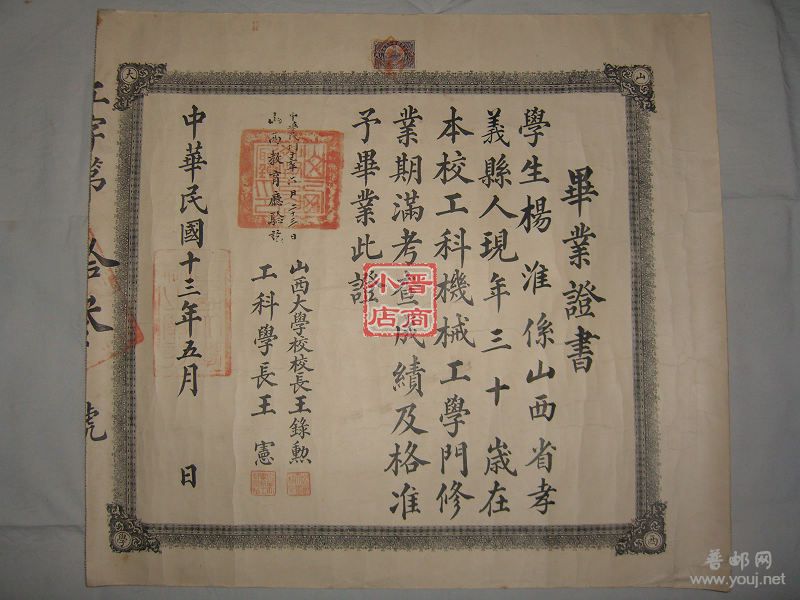 畢業證書
學生楊淮係山西省孝
義縣人現年三十歲在
本校工科機械工學門修
業期滿考查成績及格准
予畢業此證
山西大學校校長王錄勲
工科學長王憲
山西教育廳驗訖
中華民國十三年五月 日
號
山
西
大
學
晋商
小店
普邮网
www.youj.net